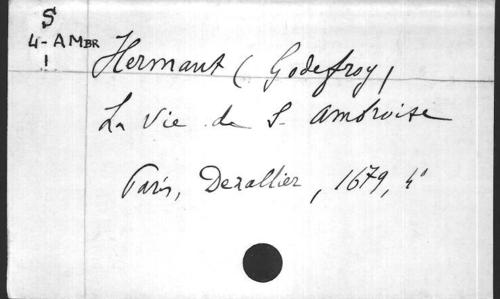 S
4-AMBR
1
Hermant (Godefroy)
La Vie de S. Ambroise
Paris, Dezallier, 1679, 4°